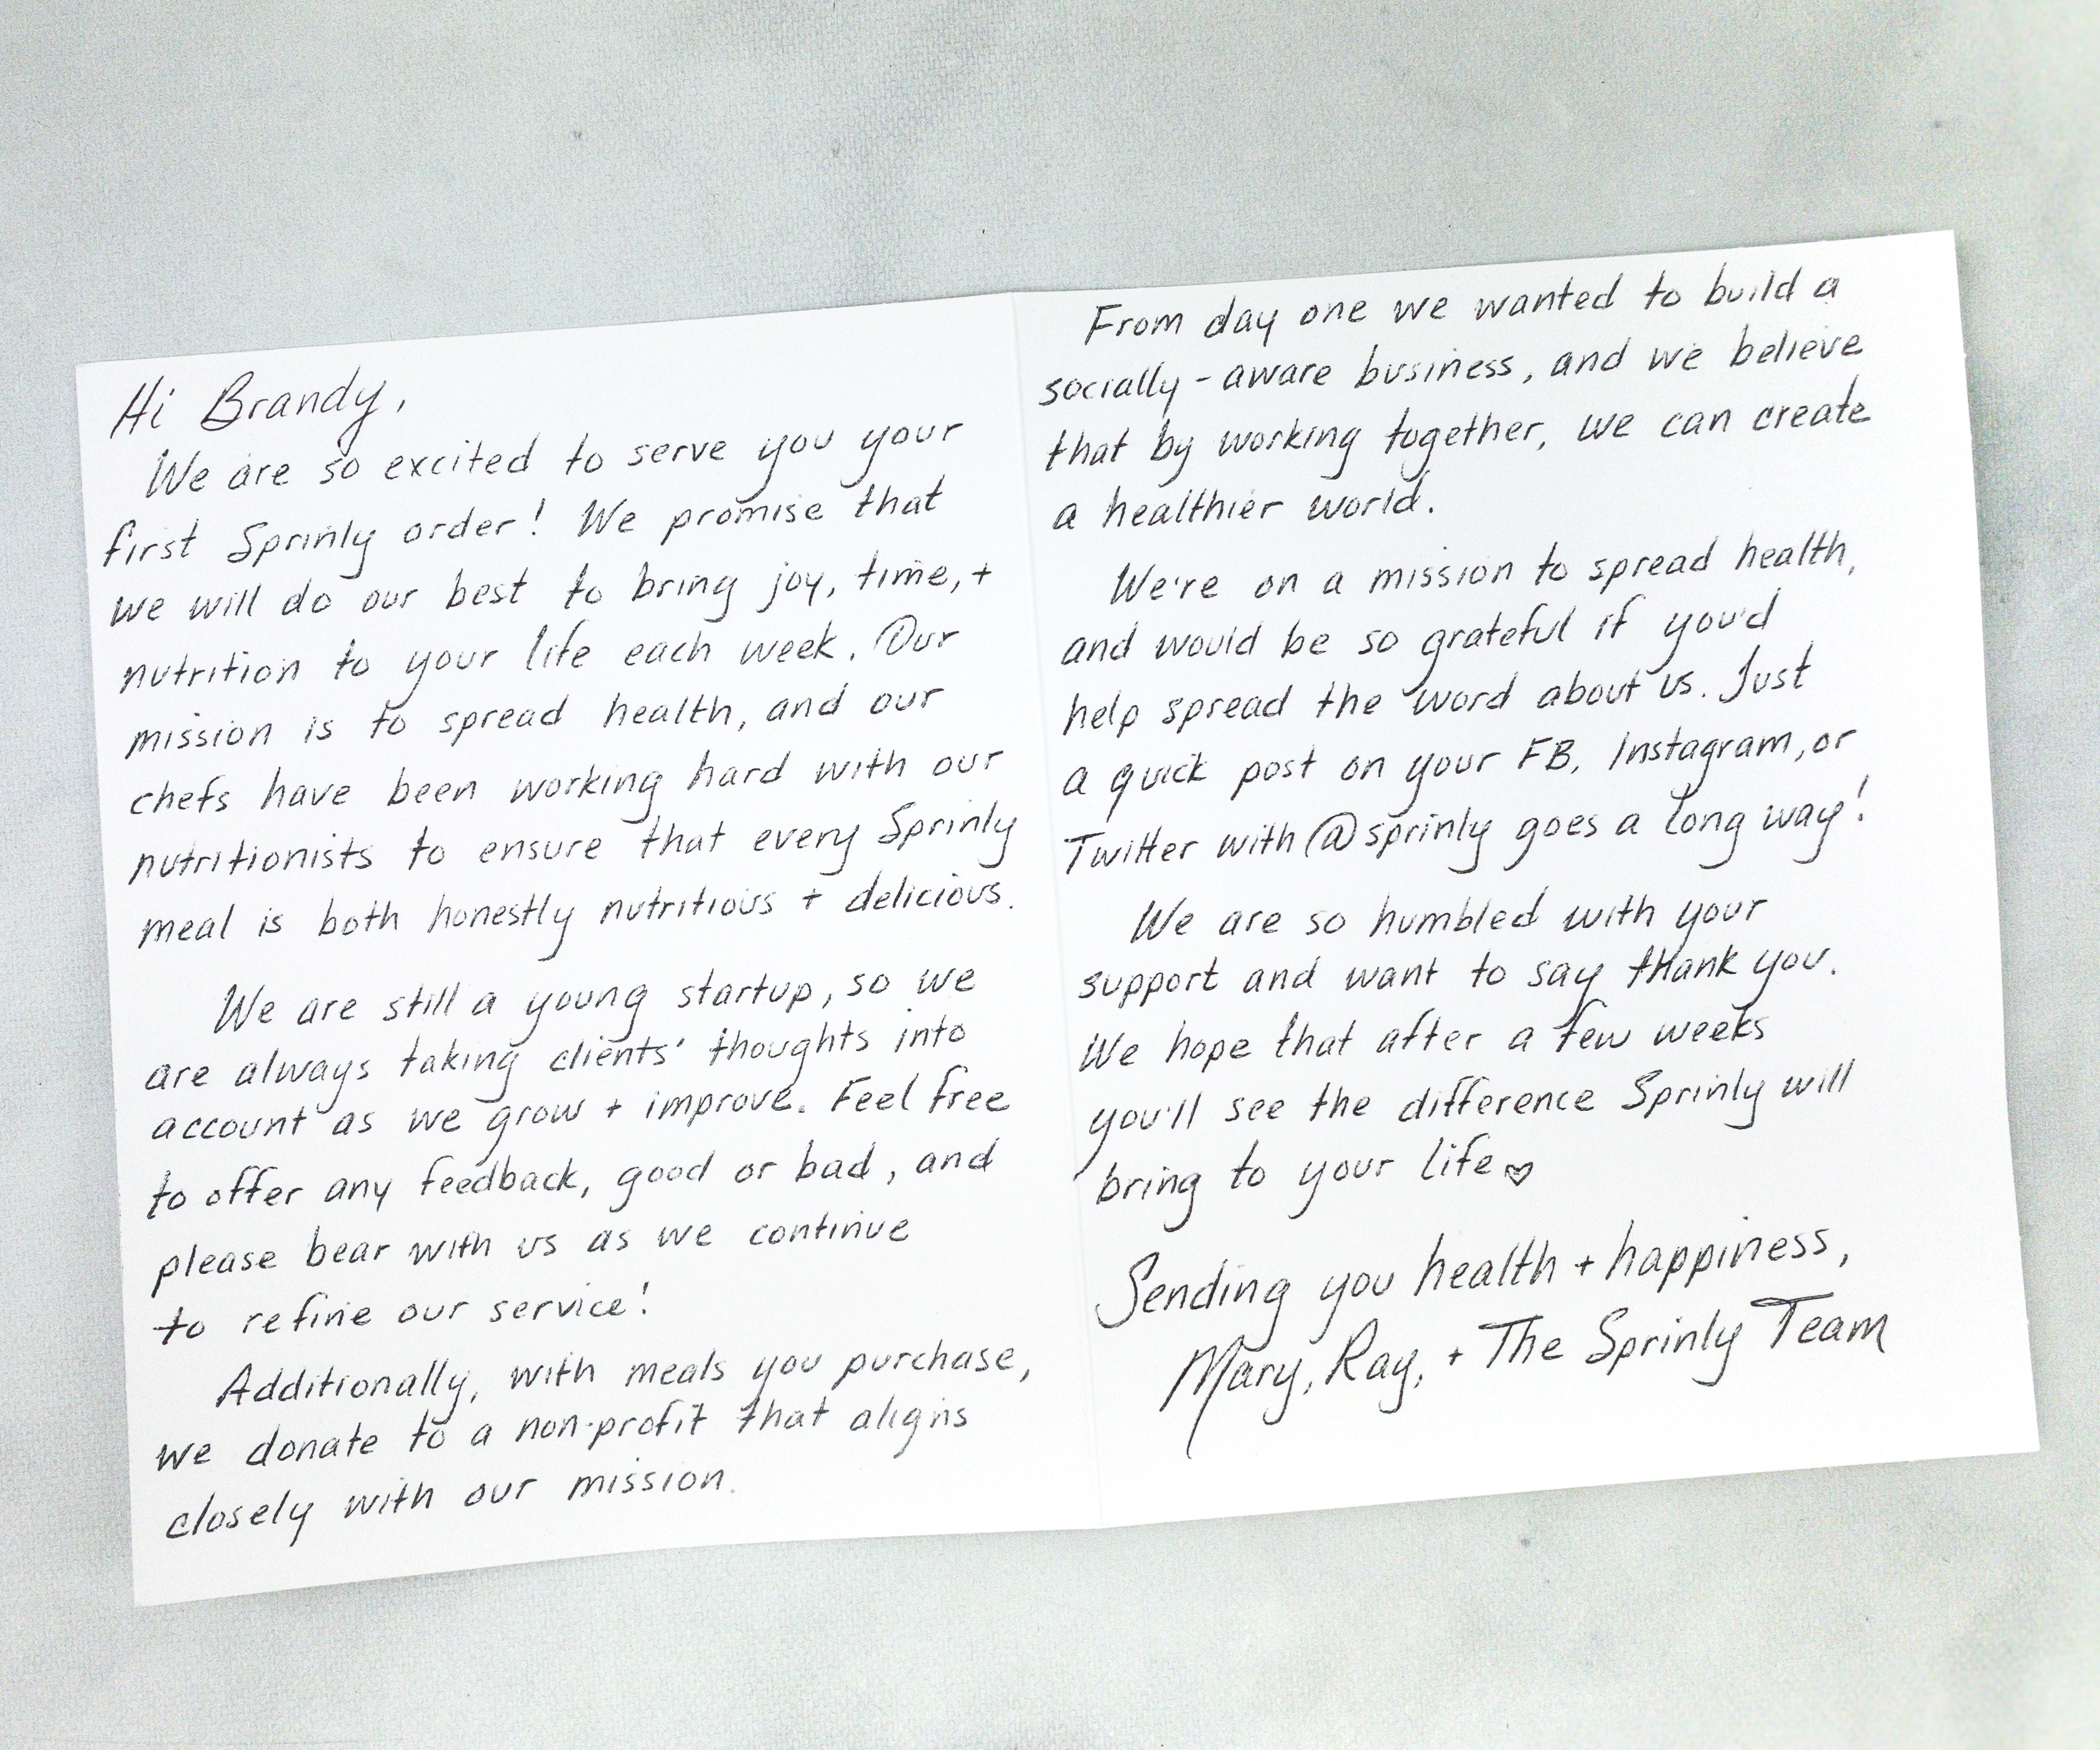 Hi Brandy,
We are so excited to serve you your
first Sprinly order! We promise that
we will do our best to bring joy, time, +
nutrition to your life each week. Our
mission is to spread health, and our
chefs have been working hard with our
nutritionists to ensure that every Sprinly
meal is both honestly nutritious + delicious.
We are still a young startup, so we
are always taking clients' thoughts into
account as we grow + improve. Feel free
to offer any feedback, good or bad, and
please bear with us as we continue
to refine our service!
Additionally, with meals you purchase,
we donate to a non-profit that aligns
closely with our mission.
From day one we wanted to build a
socially-aware business, and we believe
that by working together, we can create
a healthier world.
We're on a mission to spread health,
and would be so grateful if you'd
help spread the word about us. Just
a quick post on your FB, Instagram, or
Twitter with @sprinly goes a long way!
We are so humbled with your
support and want to say thank you.
We hope that after a few weeks
you'll see the difference Sprinly will
bring to your life♡
Sending you health + happiness,
Mary, Ray, + The Sprinly Team